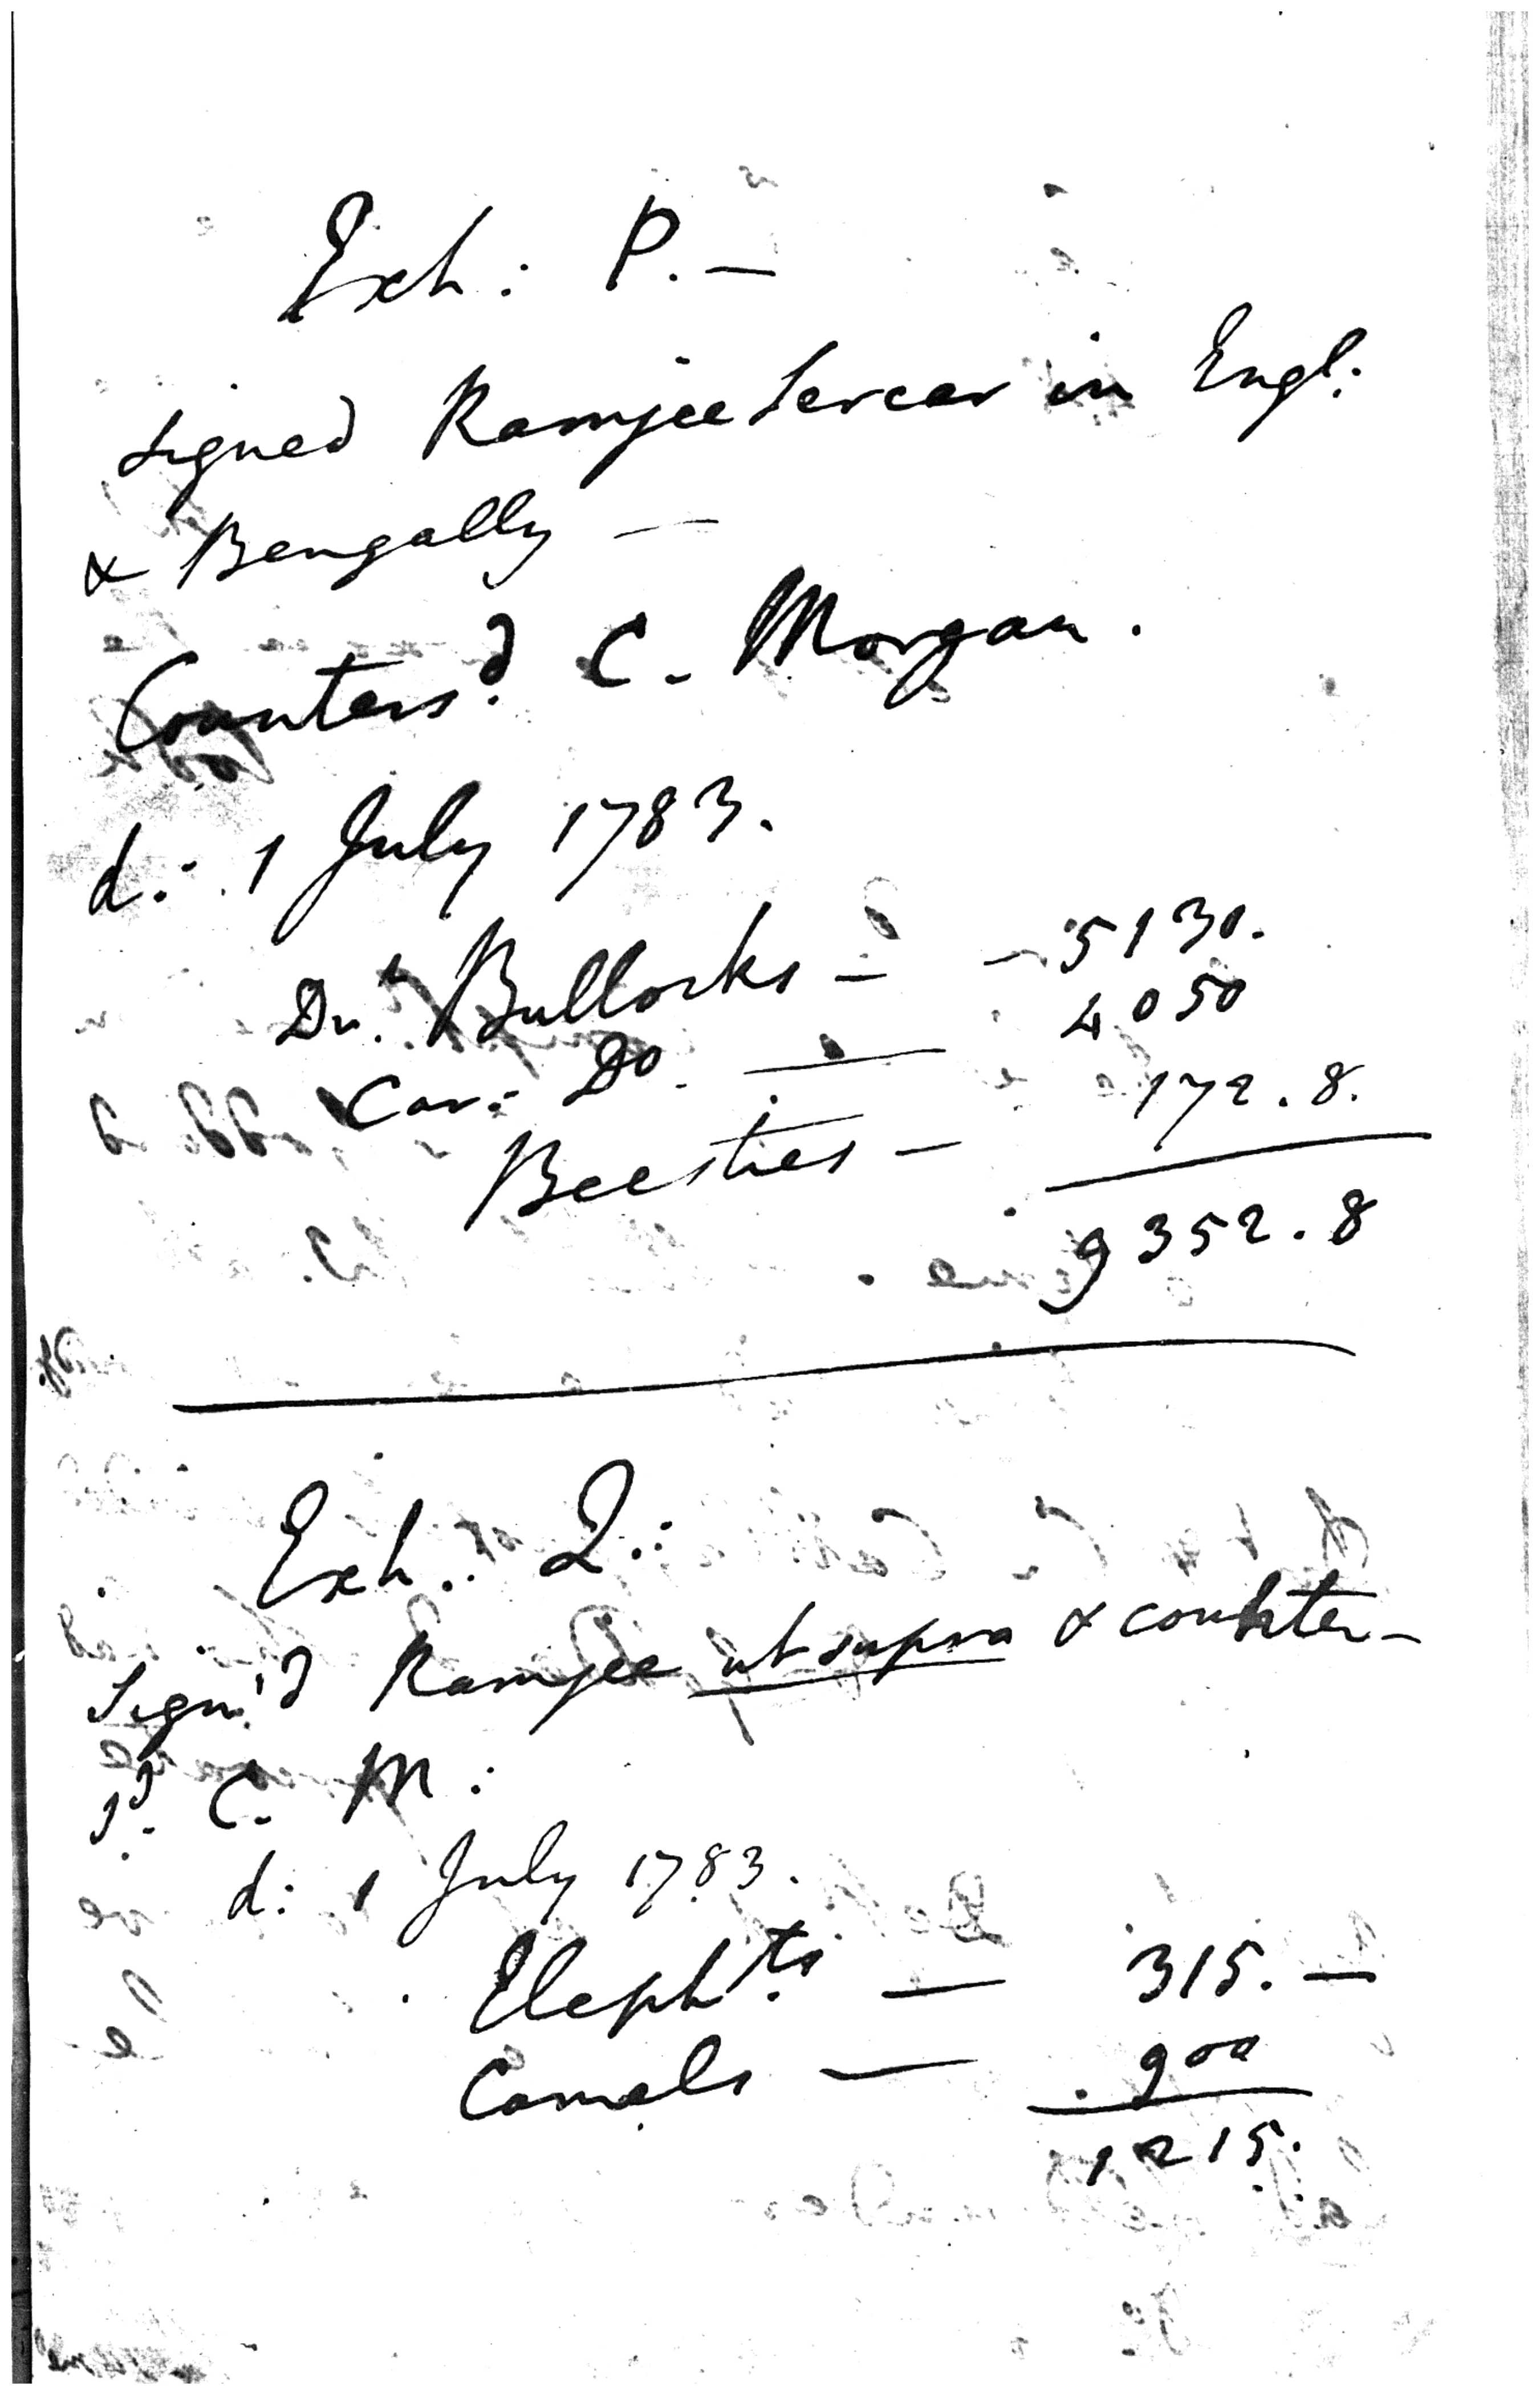 Exh: P. —
signed Ramjee Sercar in Engl:
& Bengally —
Counters.d C. Morgan.
d: 1 July 1783.
Dr.t Bullocks — — 5130.
Car: Do. — 4050
Beesties — 172.8.
9352.8
Exh: Q:
Sign'd Ramjee ut supra & counter-
s.d C. M:
d: 1 July 1783.
Eleph.ts — 315. —
Camels — 900
1215.